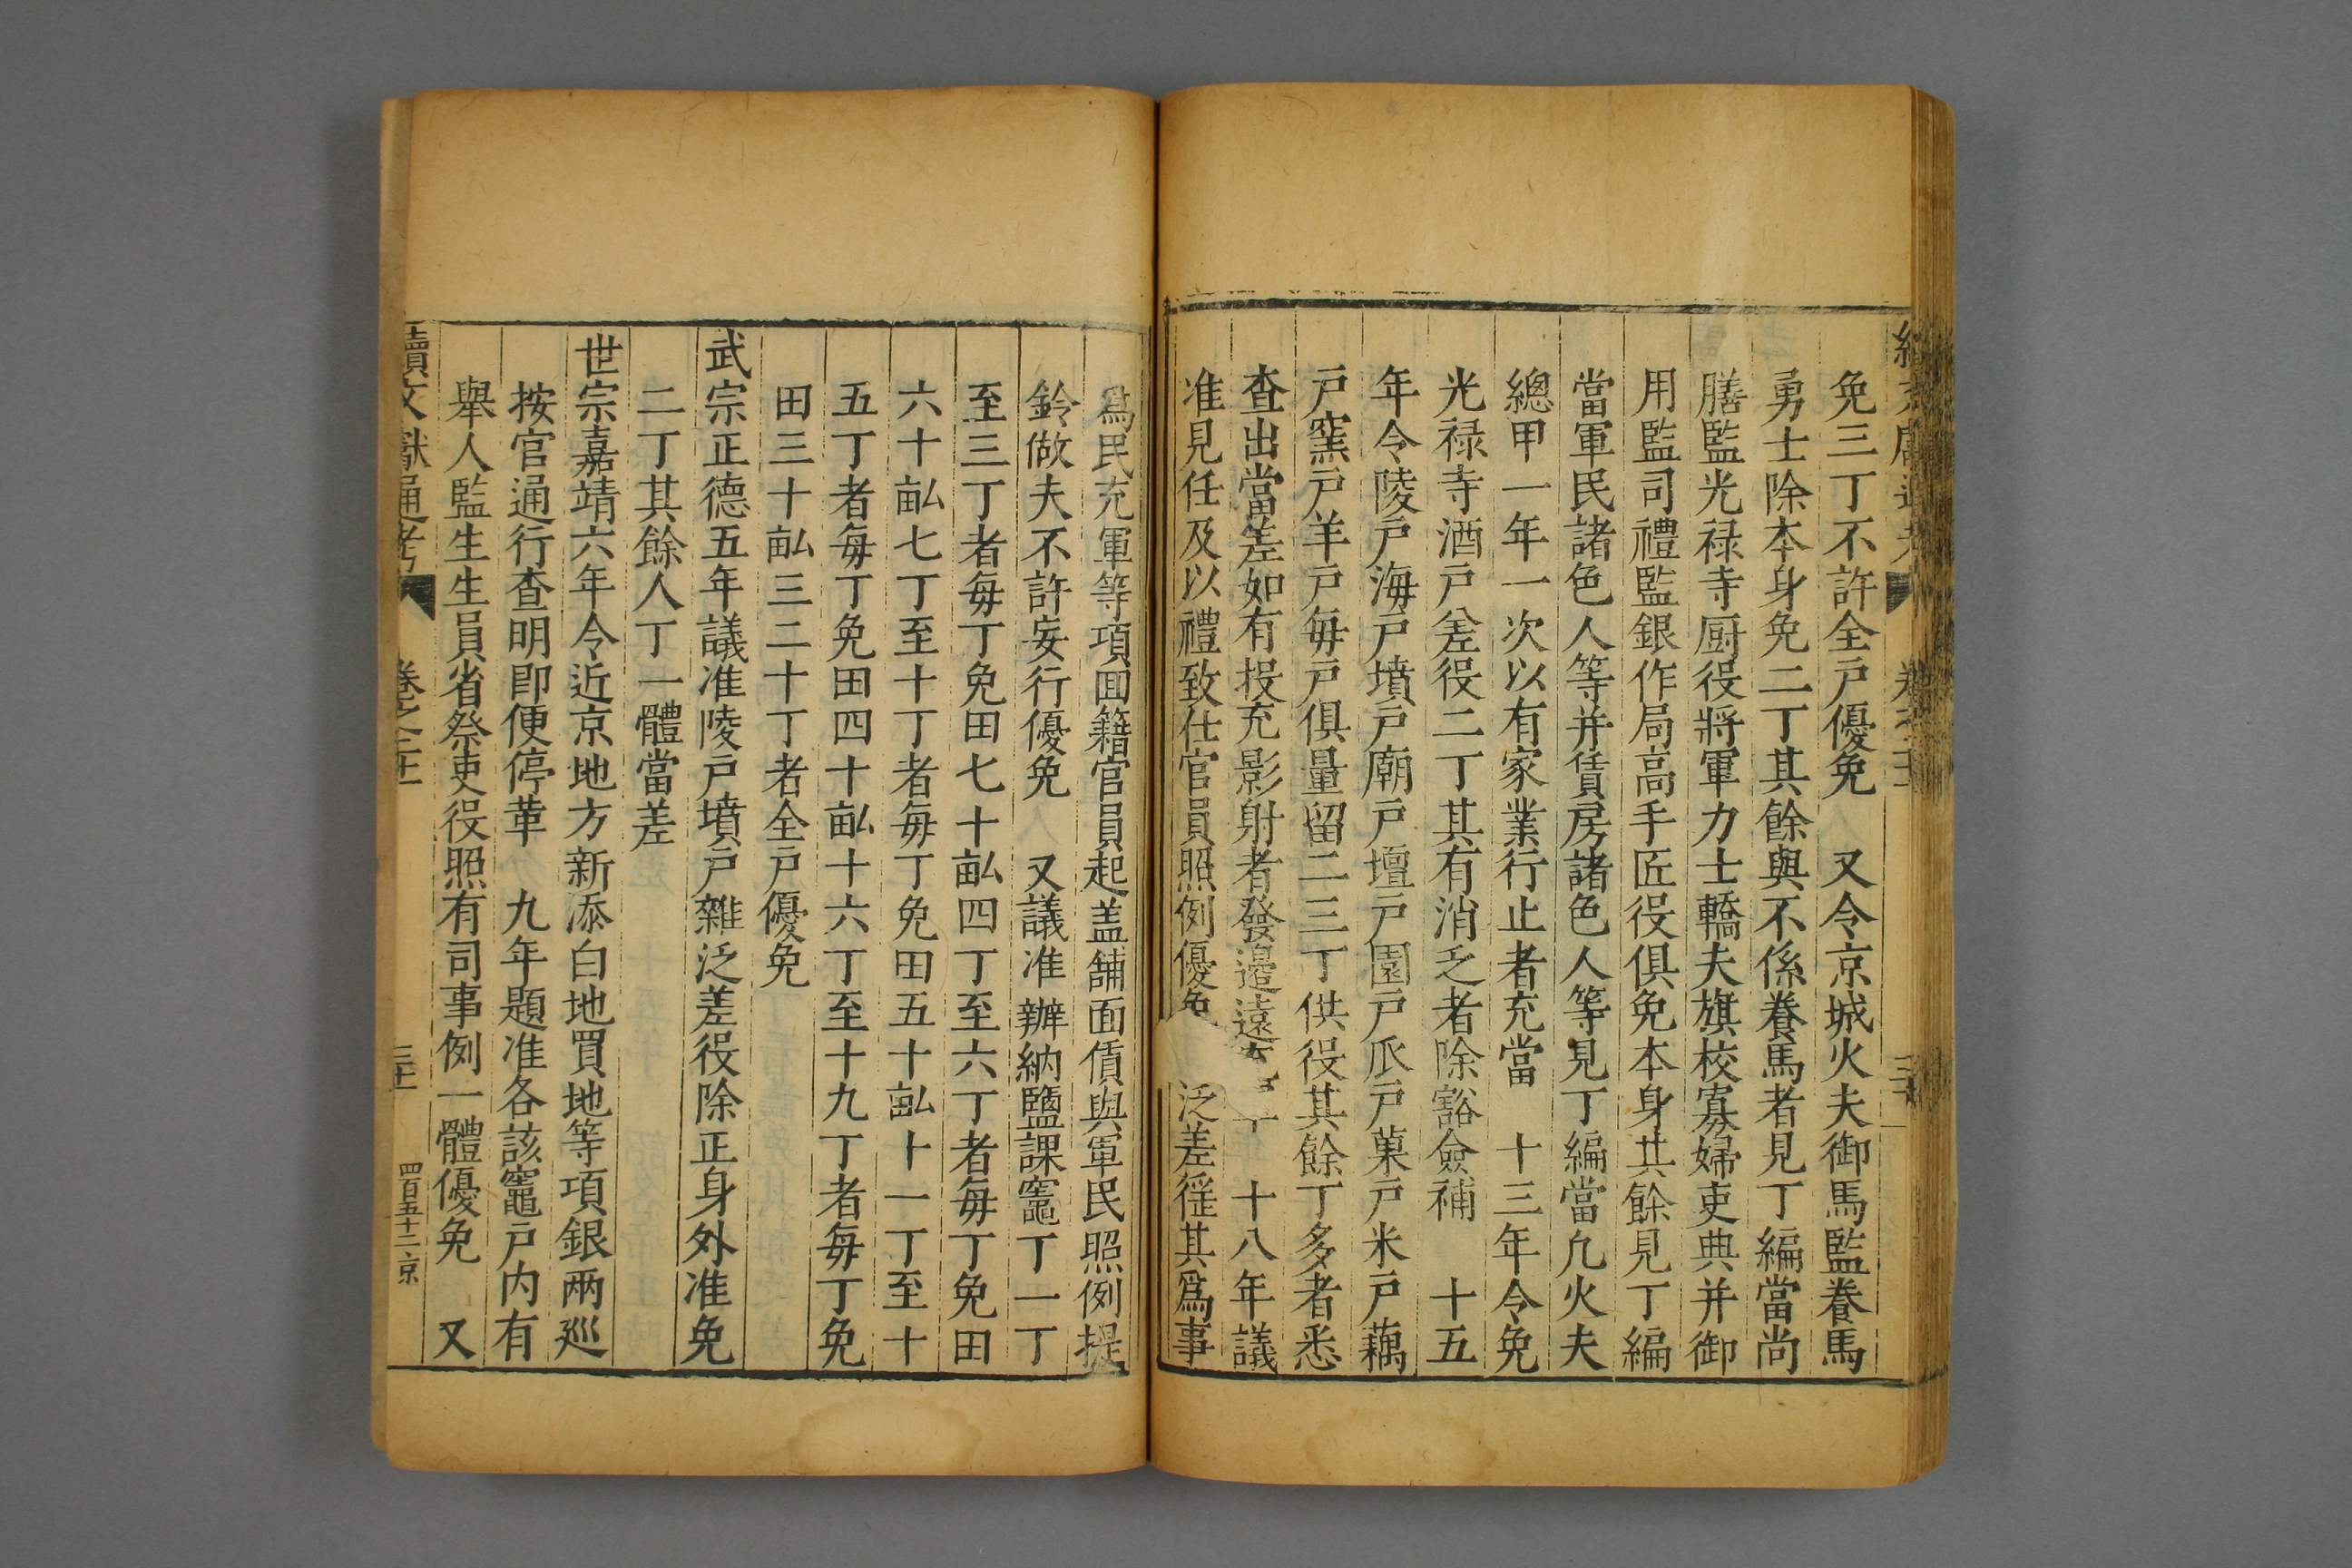 免三丁不許全戶優免　又令京城火夫御馬監養馬
勇士除本身免二丁其餘與不係養馬者見丁編當尚
膳監光祿寺厨役將軍力士轎夫旗校寡婦吏典并御
用監司禮監銀作局高手匠役俱免本身其餘見丁編
當軍民諸色人等并賃房諸色人等見丁編當凢火夫
總甲一年一次以有家業行止者充當　十三年令免
光祿寺酒戶差役二丁其有消乏者除豁僉補　十五
年令陵戶海戶墳戶廟戶壇戶園戶瓜戶菓戶米戶藕
戶窯戶羊戶每戶俱量留二三丁供役其餘丁多者悉
查出當差如有投充影射者發邉遠　十八年議
准見任及以禮致仕官員照例優免　泛差徭其爲事
爲民充軍等項囬籍官員起盖舖面賃與軍民照例提
鈴做夫不許妄行優免　又議准辦納鹽課竈丁一丁
至三丁者每丁免田七十畆四丁至六丁者每丁免田
六十畆七丁至十丁者每丁免田五十畆十一丁至十
五丁者每丁免田四十畆十六丁至十九丁者每丁免
田三十畆三二十丁者全戶優免
武宗正德五年議准陵戶墳戶雜泛差役除正身外准免
二丁其餘人丁一體當差
世宗嘉靖六年令近京地方新添白地買地等項銀兩廵
按官通行查明即便停革　九年題准各該竈戶内有
舉人監生生員省祭吏役照有司事例一體優免　又
續文獻通考　卷之二十一　三十一　四百五十二　京